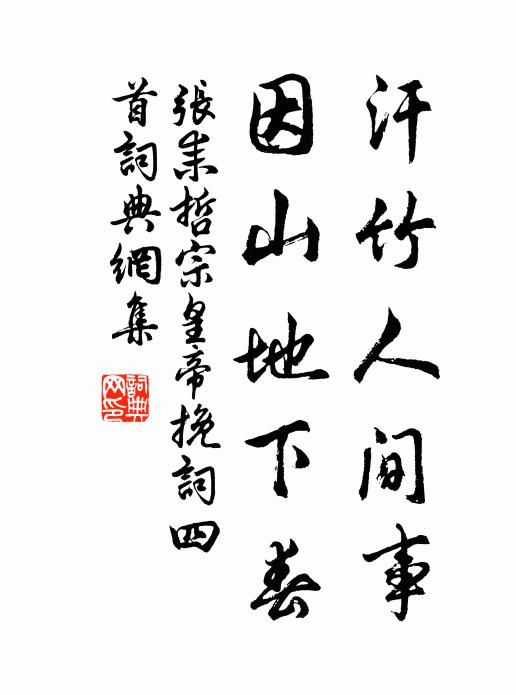 汗竹人間事
因山地下春
張耒哲宗皇帝挽詞四
首詞典網集
詞典
网印